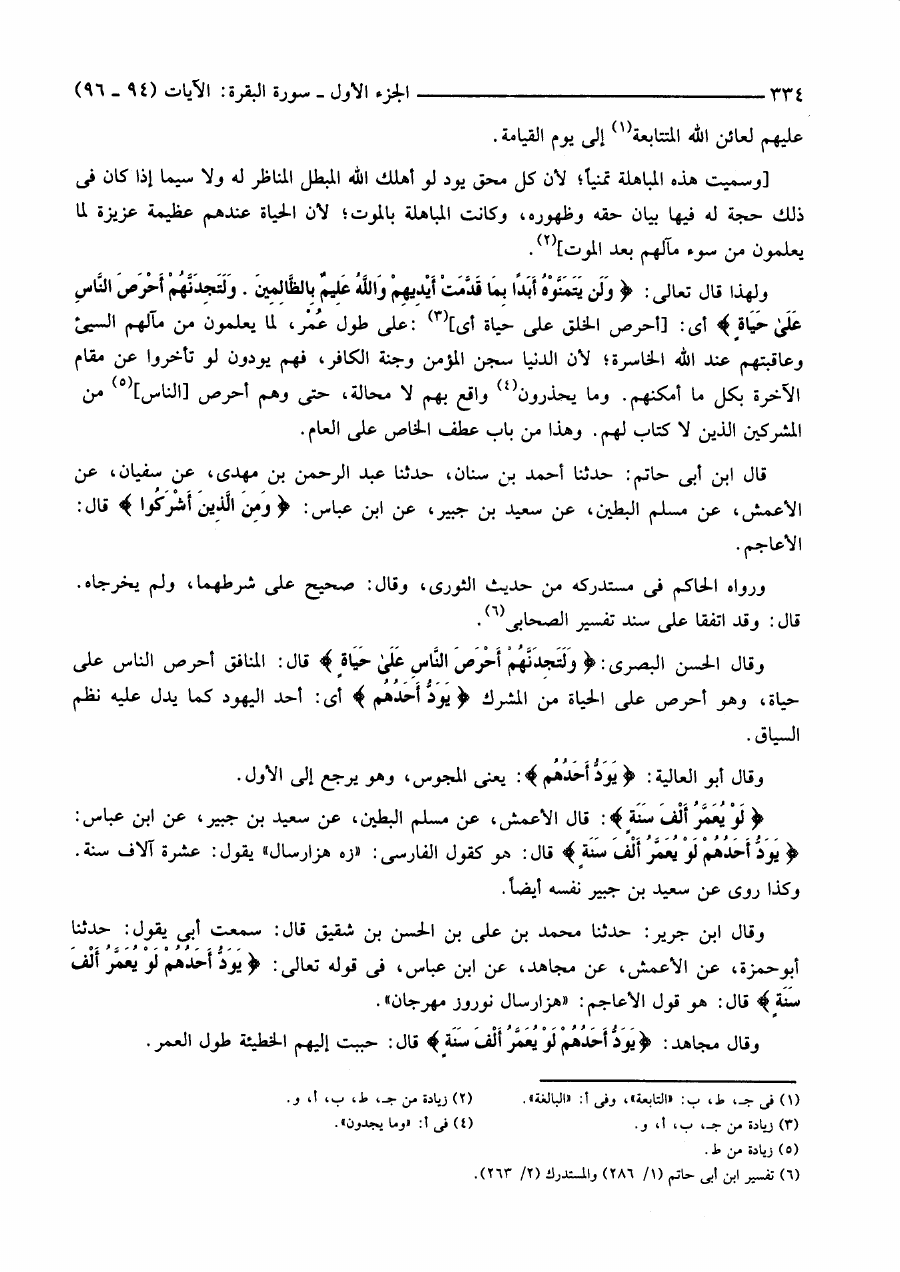 ٣٣٤ ــــــــــ الجزء الأول ــ سورة البقرة: الآيات (٩٤ ــ ٩٦)
عليهم لعائن الله المتتابعة(١) إلى يوم القيامة.
[وسميت هذه المباهلة تمنياً؛ لأن كل محق يود لو أهلك الله المبطل المناظر له ولا سيما إذا كان فى
ذلك حجة له فيها بيان حقه وظهوره، وكانت المباهلة بالموت؛ لأن الحياة عندهم عظيمة عزيزة لما
يعلمون من سوء مآلهم بعد الموت](٢).
ولهذا قال تعالى: ﴿ وَلَن يَتَمَنَّوْهُ أَبَدًا بِمَا قَدَّمَتْ أَيْدِيهِمْ وَاللَّهُ عَلِيمٌ بِالظَّالِمِينَ . وَلَتَجِدَنَّهُمْ أَحْرَصَ النَّاسِ
عَلَىٰ حَيَاةٍ ﴾ أى: [أحرص الخلق على حياة أى](٣) :على طول عُمْر، لما يعلمون من مآلهم السيئ
وعاقبتهم عند الله الخاسرة؛ لأن الدنيا سجن المؤمن وجنة الكافر، فهم يودون لو تأخروا عن مقام
الآخرة بكل ما أمكنهم. وما يحذرون(٤) واقع بهم لا محالة، حتى وهم أحرص [الناس](٥) من
المشركين الذين لا كتاب لهم. وهذا من باب عطف الخاص على العام.
قال ابن أبى حاتم: حدثنا أحمد بن سنان، حدثنا عبد الرحمن بن مهدى، عن سفيان، عن
الأعمش، عن مسلم البطين، عن سعيد بن جبير، عن ابن عباس: ﴿ وَمِنَ الَّذِينَ أَشْرَكُوا ﴾ قال:
الأعاجم.
ورواه الحاكم فى مستدركه من حديث الثورى، وقال: صحيح على شرطهما، ولم يخرجاه.
قال: وقد اتفقا على سند تفسير الصحابى(٦).
وقال الحسن البصرى:﴿ وَلَتَجِدَنَّهُمْ أَحْرَصَ النَّاسِ عَلَىٰ حَيَاةٍ ﴾ قال: المنافق أحرص الناس على
حياة، وهو أحرص على الحياة من المشرك ﴿ يَوَدُّ أَحَدُهُم ﴾ أى: أحد اليهود كما يدل عليه نظم
السياق.
وقال أبو العالية: ﴿ يَوَدُّ أَحَدُهُم ﴾: يعنى المجوس، وهو يرجع إلى الأول.
﴿ لَوْ يُعَمَّرُ أَلْفَ سَنَةٍ ﴾: قال الأعمش، عن مسلم البطين، عن سعيد بن جبير، عن ابن عباس:
﴿ يَوَدُّ أَحَدُهُمْ لَوْ يُعَمَّرُ أَلْفَ سَنَةٍ ﴾ قال: هو كقول الفارسى: «زه هزارسال» يقول: عشرة آلاف سنة.
وكذا روى عن سعيد بن جبير نفسه أيضاً.
وقال ابن جرير: حدثنا محمد بن على بن الحسن بن شقيق قال: سمعت أبى يقول: حدثنا
أبوحمزة، عن الأعمش، عن مجاهد، عن ابن عباس، فى قوله تعالى: ﴿ يَوَدُّ أَحَدُهُمْ لَوْ يُعَمَّرُ أَلْفَ
سَنَةٍ ﴾ قال: هو قول الأعاجم: «هزارسال نوروز مهرجان».
وقال مجاهد: ﴿يَوَدُّ أَحَدُهُمْ لَوْ يُعَمَّرُ أَلْفَ سَنَةٍ﴾ قال: حببت إليهم الخطيئة طول العمر.
(١) فى جـ، ط، ب: «التابعة»، وفى أ: «البالغة». (٢) زيادة من جـ، ط، ب، أ، و.
(٣) زيادة من جـ، ب، أ، و. (٤) فى أ: «وما يجدون».
(٥) زيادة من ط.
(٦) تفسير ابن أبى حاتم (١/ ٢٨٦) والمستدرك (٢/ ٢٦٣).